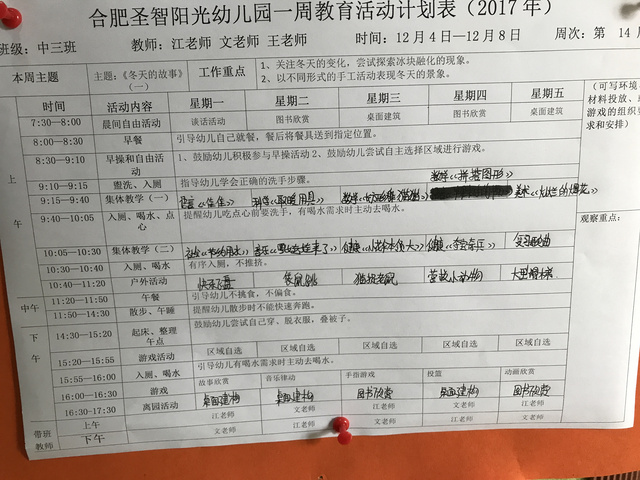 合肥圣智阳光幼儿园一周教育活动计划表（2017 年）
班级：中三班 教师：江老师 文老师 王老师 时间：12 月 4 日—12 月 8 日 周次：第 14
本周主题 主题：《冬天的故事》（一） 工作重点 1、关注冬天的变化，尝试探索冰块融化的现象。
2、以不同形式的手工活动表现冬天的景象。
时间 活动内容 星期一 星期二 星期三 星期四 星期五 （可写环境、
材料投放、
游戏的组织
求和安排）
7:30—8:00 晨间自由活动 谈话活动 图书欣赏 桌面建筑 图书欣赏 桌面建筑
8:00—8:30 早餐 引导幼儿自己就餐，餐后将餐具送到指定位置。
8:30—9:10 早操和自由活动 1、鼓励幼儿积极参与早操活动 2、鼓励幼儿尝试自主选择区域进行游戏。
上午
9:10—9:15 盥洗、入厕 指导幼儿学会正确的洗手步骤。
数学《拼装图形》
9:15—9:40 集体教学（一） 美术
9:40—10:05 入厕、喝水、点心 提醒幼儿吃点心前要洗手，有喝水需求时主动去喝水。
观察重点：
10:05—10:30 集体教学（二） 健康 健康
10:30—10:40 入厕、喝水 有序入厕，不推挤。
10:40—11:20 户外活动 袋鼠跳 猫捉老鼠 营救小动物
中午 11:20—11:50 午餐 引导幼儿不挑食，不偏食。
11:50—14:30 散步、午睡 提醒幼儿散步时不能快速奔跑。
下午
14:30—15:20 起床、整理 午点 鼓励幼儿尝试自己穿、脱衣服，叠被子。
15:20—15:55 游戏活动 区域自选 区域自选 区域自选 区域自选 区域自选
15:55—16:00 入厕、喝水 引导幼儿有喝水需求时主动去喝水。
16:00—16:30 游戏 故事欣赏 音乐律动 手指游戏 投篮 动画欣赏
16:30—17:30 离园活动 桌面建构 桌面建构 图书欣赏 桌面建构 图书欣赏
带班教师 上午 江老师 文老师 江老师 文老师 江老师
下午 文老师 江老师 文老师 江老师 文老师